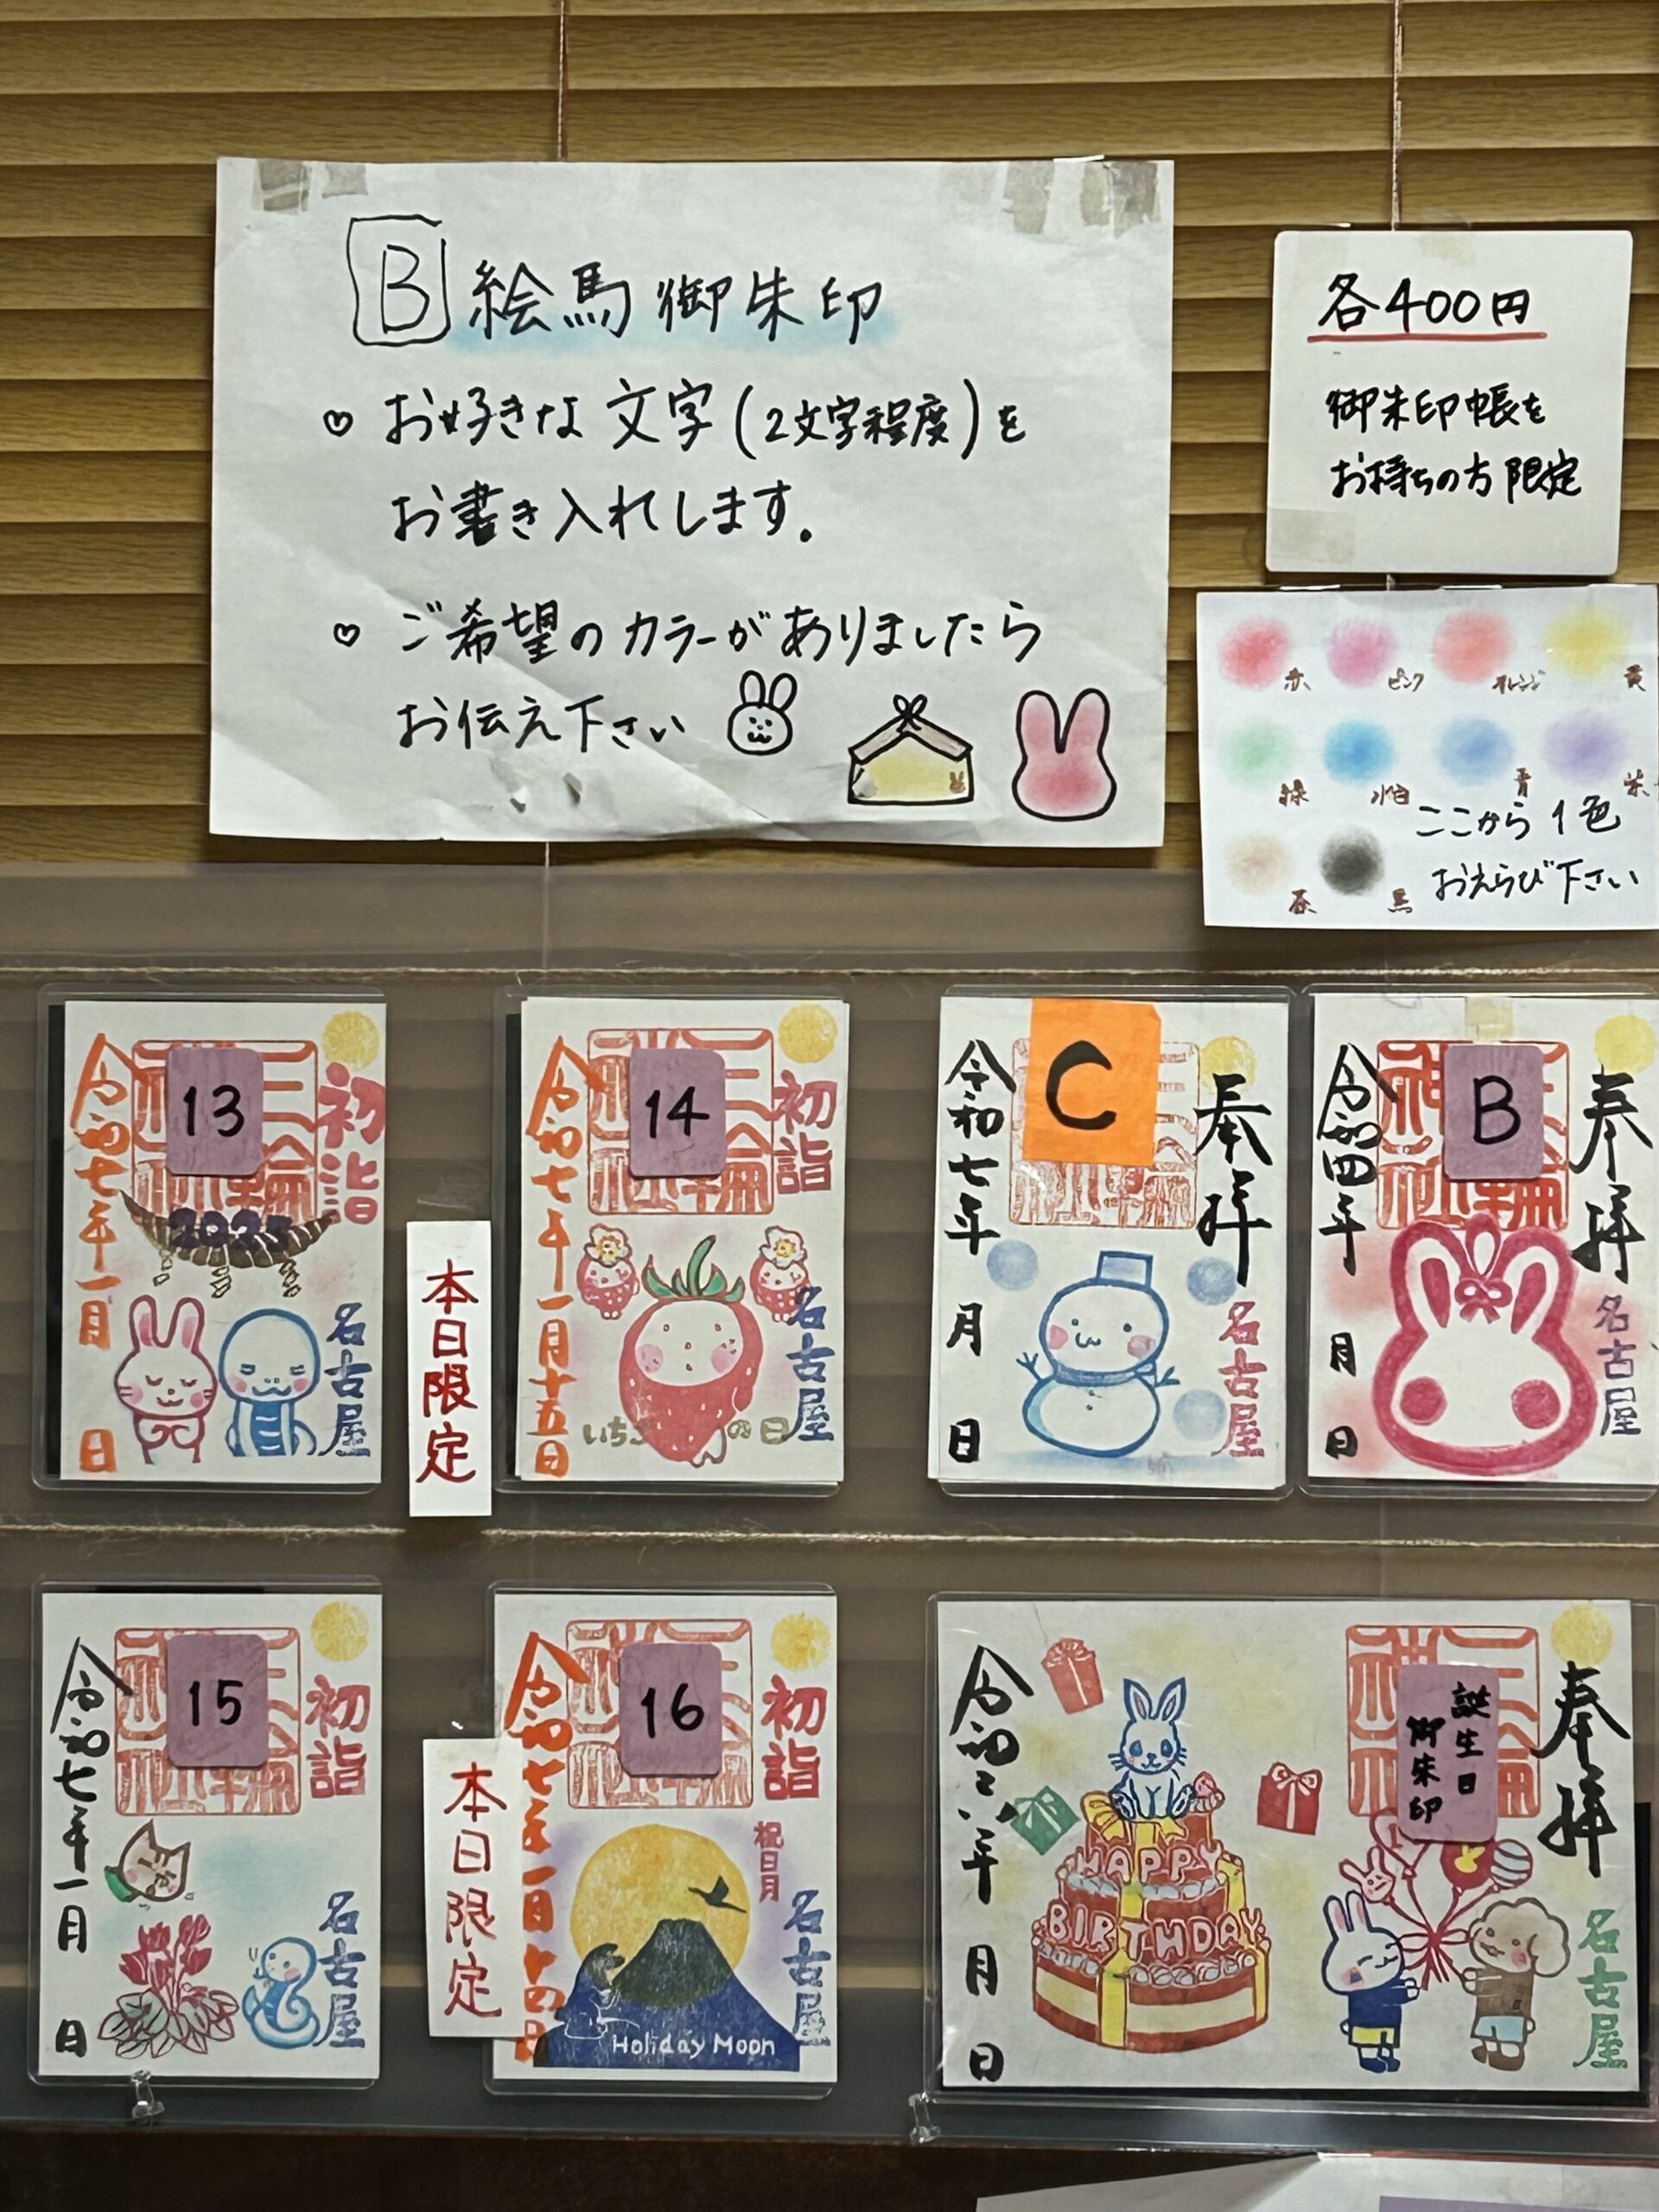 B 絵馬御朱印
♡ お好きな文字(2文字程度)を
お書き入れします.
♡ ご希望のカラーがありましたら
お伝え下さい
各400円
御朱印帳を
お持ちの方限定
赤 ピンク オレンジ 黄
緑 水色 青 紫
茶 黒
ここから1色
おえらび下さい
13
初詣
三輪
2025
令和七年一月 日
名古屋
本日限定
14
初詣
三輪
令和七年一月十五日
いちごの日
名古屋
C
奉拝
令和七年 月 日
名古屋
B
奉拝
令和四年 月 日
名古屋
15
初詣
令和七年一月 日
名古屋
本日限定
16
初詣
令和七年一月十四日
祝日月
名古屋
Holiday Moon
誕生日
御朱印
奉拝
令和 年 月 日
HAPPY
BIRTHDAY
名古屋